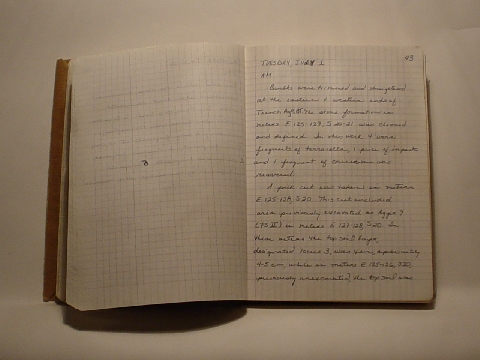 TUESDAY, JULY 1 83
AM
Baulks were trimmed and straightened
at the eastern & western ends of
Trench. The stone formation in
meters E 125-127, S 20-21 was cleaned
and defined. In this work 4 more
fragments of terracotta, 1 piece of impasto
and 1 fragment of was
recovered.
A new cut was in meters
E 125-128, S 20. This cut included
area previously excavated as
in meters E 127-128, S 20. In
these meters the top soil layer,
designated locus 3, was very, approximately
4-5 cm, while in meters E 125-126, S 20,
previously unexcavated, the top soil was